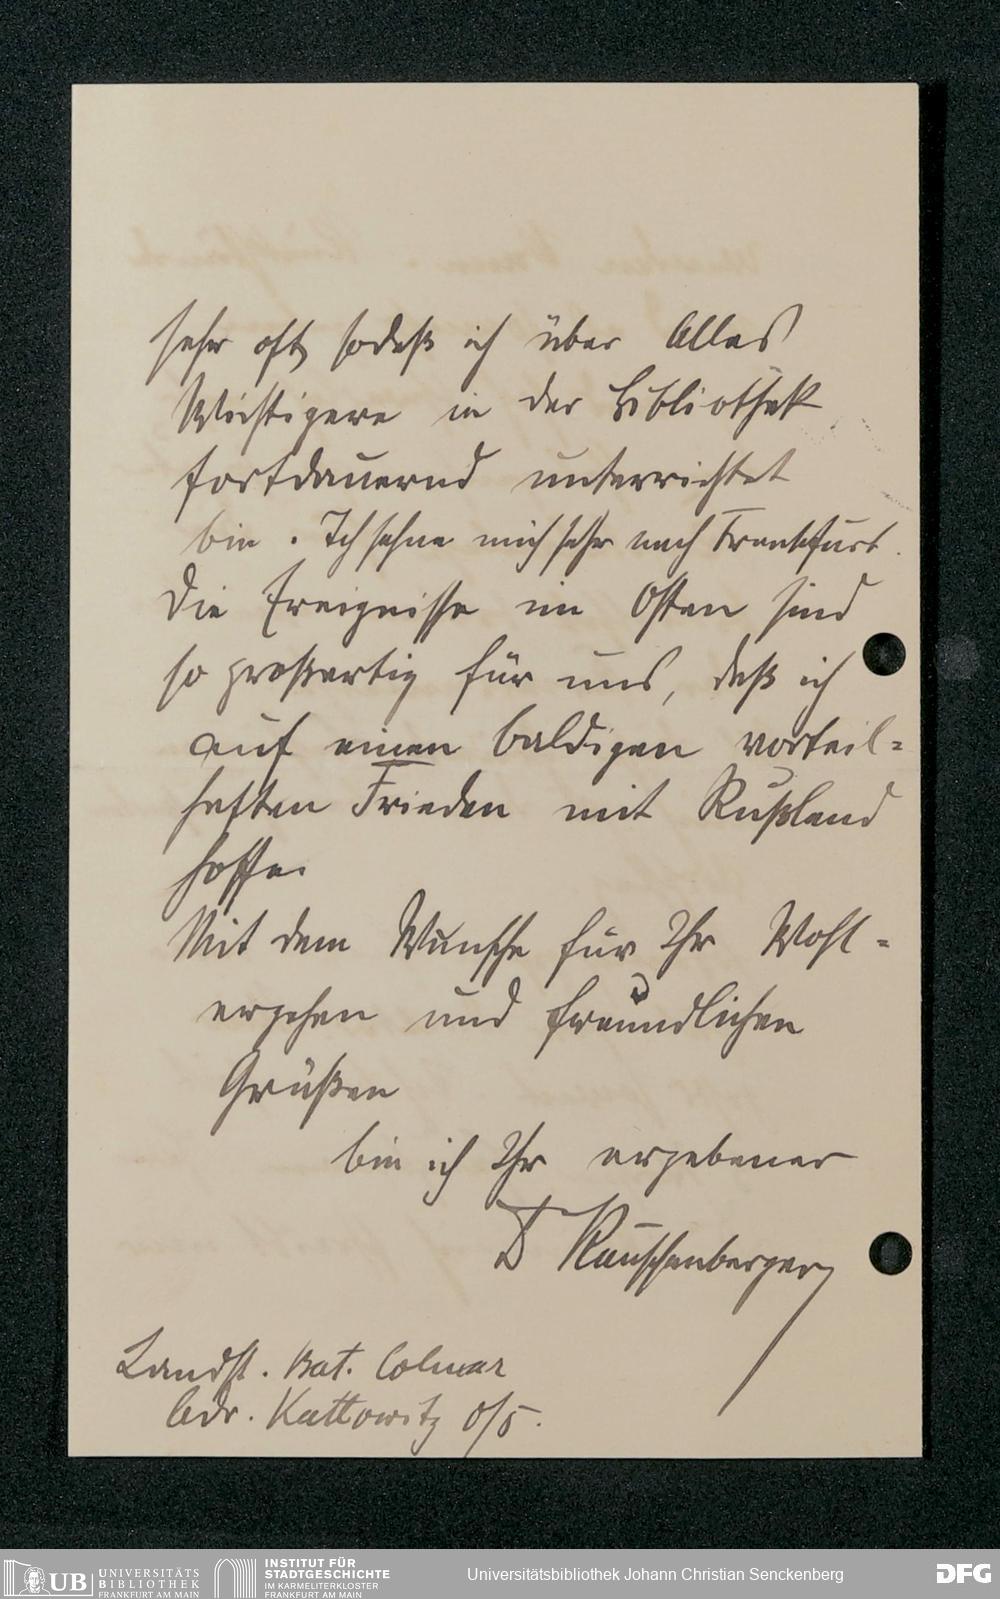 sehr oft, sodaß ich über Alles
Wichtigere in der Bibliothek
fortdauernd unterrichtet
bin. Ich sehne mich sehr nach Frankfurt.
Die Ereignisse im Osten sind
so großartig für uns, daß ich
auf einen baldigen vorteil=
haften Frieden mit Rußland
hoffe.
Mit dem Wunsche für Ihr Wohl=
ergehen und freundlichen
Grüßen
bin ich Ihr ergebener
Dr Rauschenberger
Landst. Bat. Colmar
Adr. Kattowitz O/S.
UB UNIVERSITÄTS
BIBLIOTHEK
FRANKFURT AM MAIN
INSTITUT FÜR
STADTGESCHICHTE
IM KARMELITERKLOSTER
FRANKFURT AM MAIN
Universitätsbibliothek Johann Christian Senckenberg
DFG